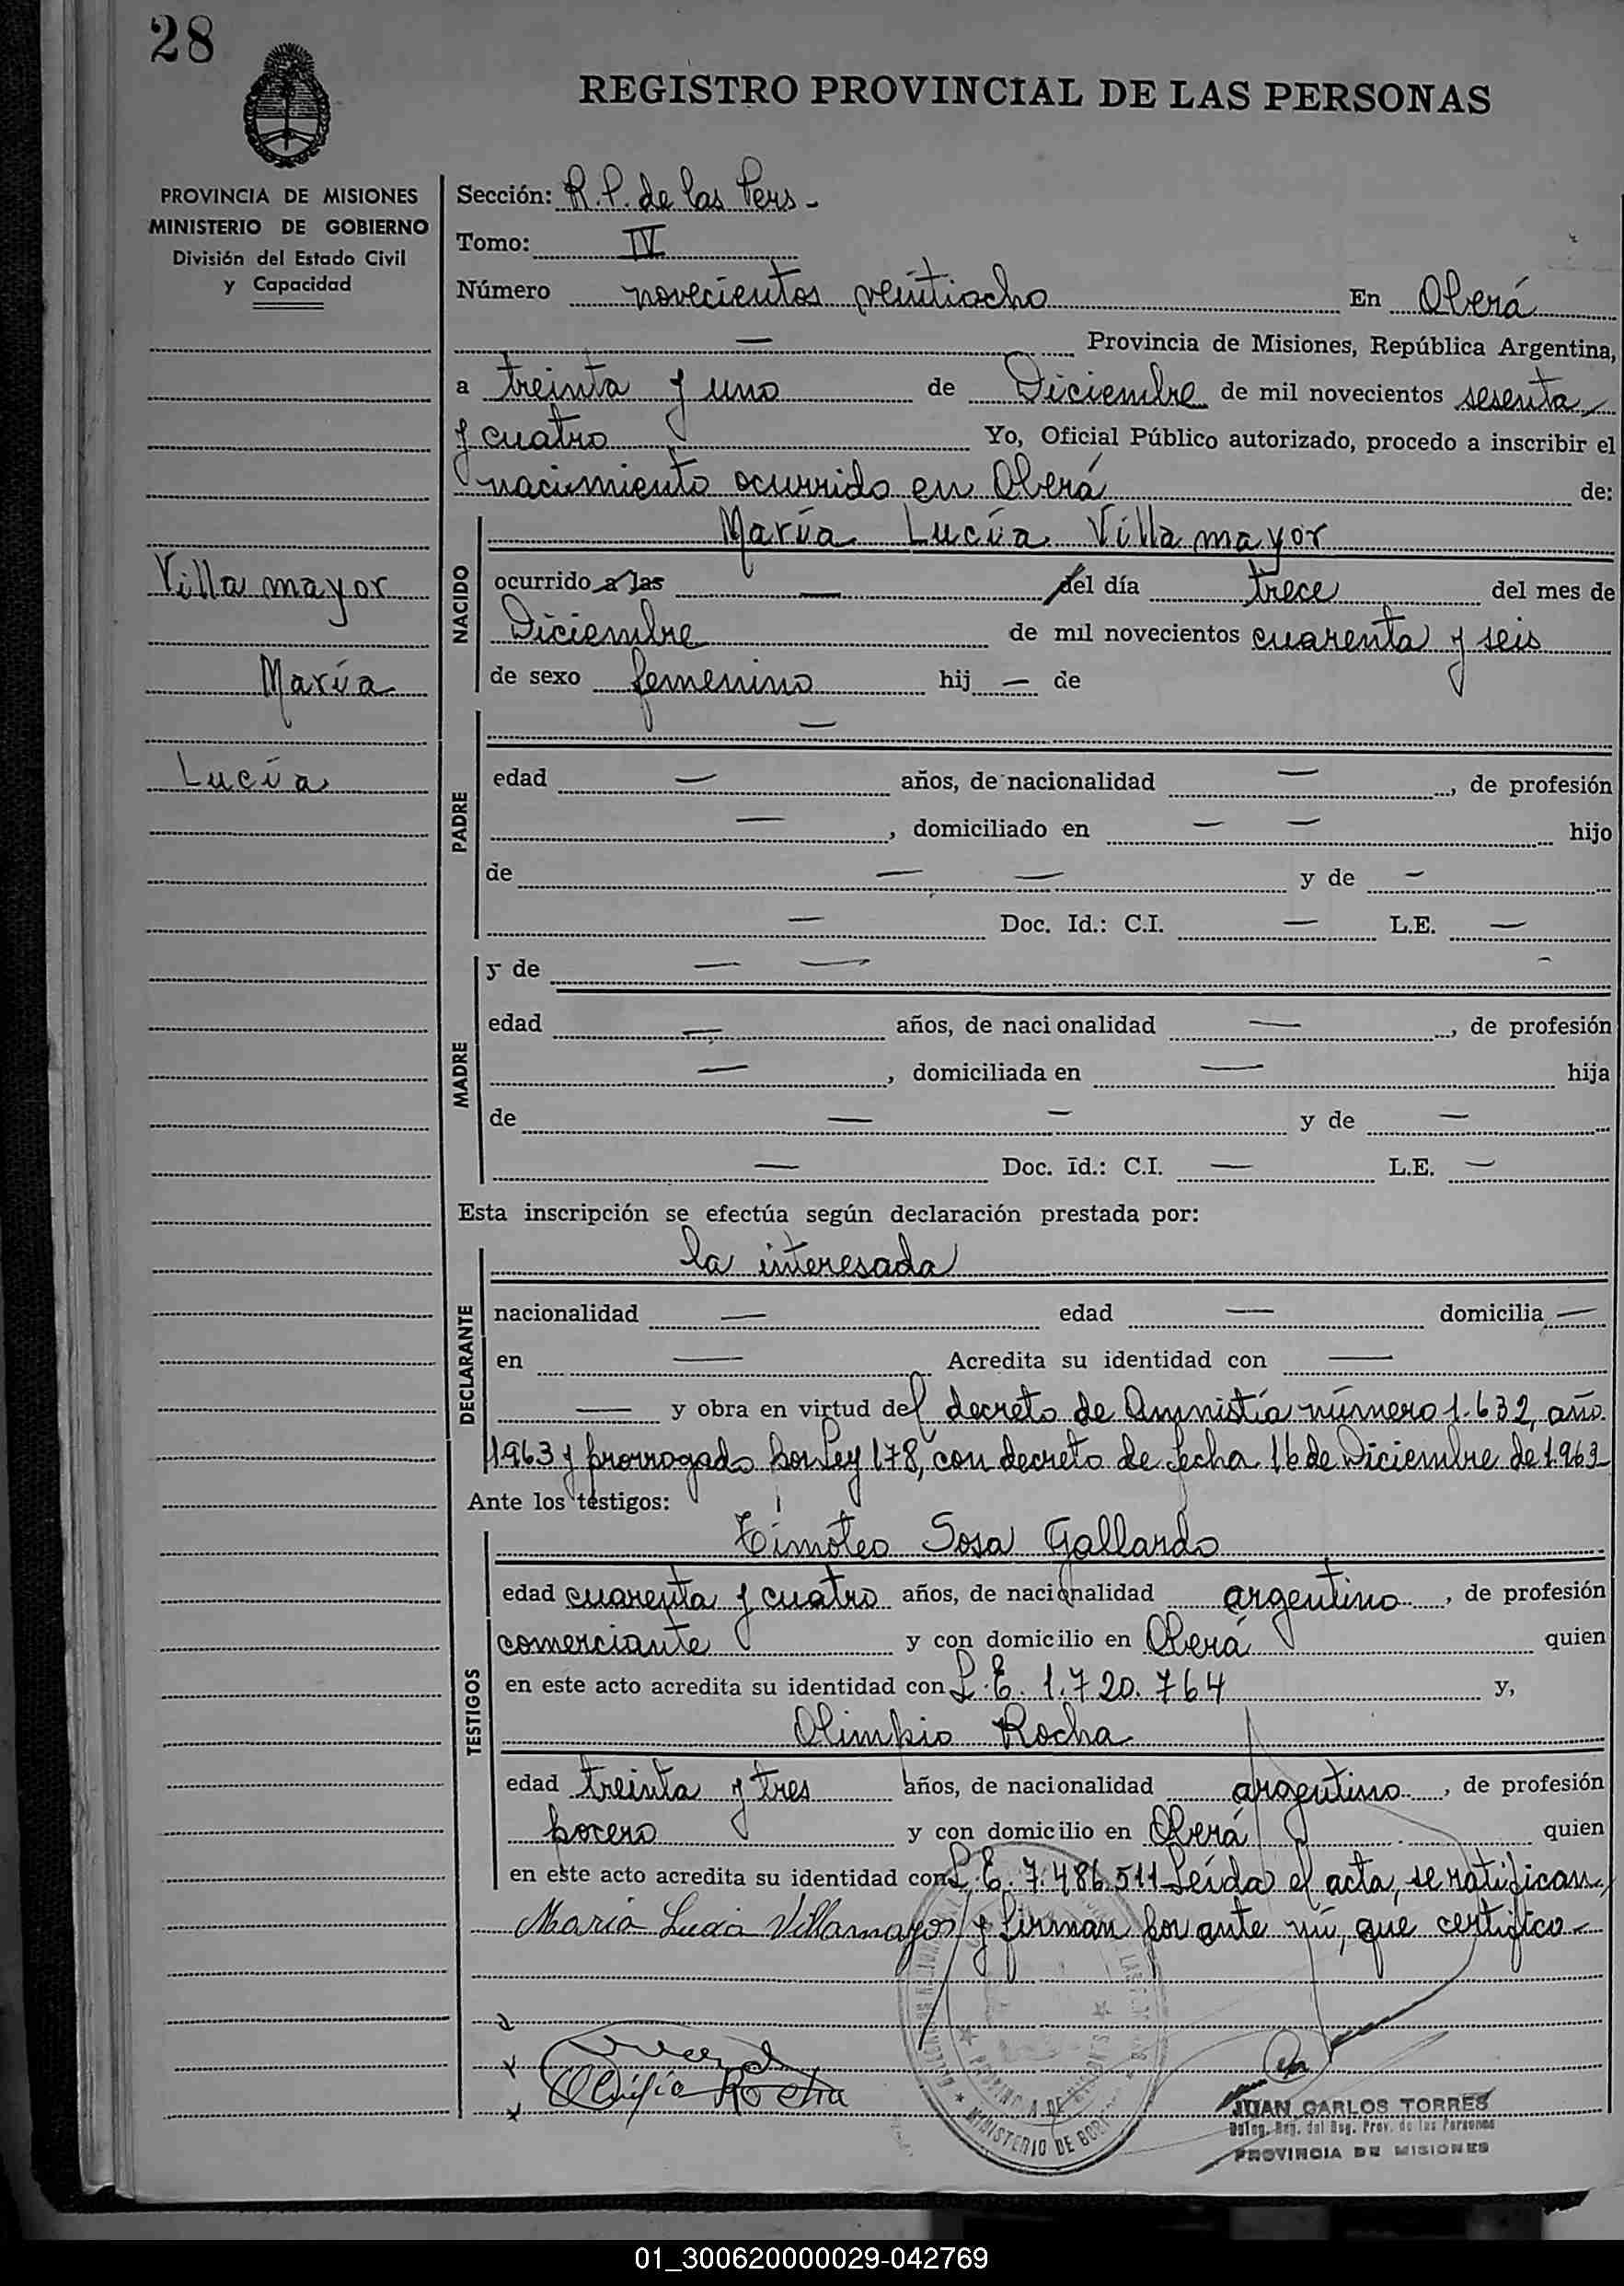 28
REGISTRO PROVINCIAL DE LAS PERSONAS
PROVINCIA DE MISIONES
MINISTERIO DE GOBIERNO
División del Estado Civil
y Capacidad
Villamayor
María
Lucía
Sección: R. P. de las Pers -
Tomo: IV
Número novecientos veintiocho En Oberá
— Provincia de Misiones, República Argentina,
a treinta y uno de Diciembre de mil novecientos sesenta
y cuatro Yo, Oficial Público autorizado, procedo a inscribir el
nacimiento ocurrido en Oberá de:
NACIDO
María Lucía Villamayor
ocurrido a las — del día trece del mes de
Diciembre de mil novecientos cuarenta y seis
de sexo femenino hij — de
PADRE
—
edad — años, de nacionalidad — , de profesión
— , domiciliado en — — hijo
de — — y de —
— Doc. Id.: C.I. — L.E. —
MADRE
y de — — -
edad — años, de nacionalidad — , de profesión
— , domiciliada en — hija
de — — y de —
— Doc. Id.: C.I. — L.E. —
Esta inscripción se efectúa según declaración prestada por:
DECLARANTE
la interesada
nacionalidad — edad — domicilia —
en — Acredita su identidad con —
— y obra en virtud del decreto de Amnistía número 1.632, año
1963 y prorrogado por Ley 178, con decreto de fecha 16 de Diciembre de 1.963
Ante los testigos:
TESTIGOS
Timoteo Sosa Gallardo
edad cuarenta y cuatro años, de nacionalidad argentino , de profesión
comerciante y con domicilio en Oberá quien
en este acto acredita su identidad con L. E. 1.720.764 y,
Olimpio Rocha
edad treinta y tres años, de nacionalidad argentino , de profesión
pocero y con domicilio en Oberá quien
en este acto acredita su identidad con L. E. 7.486.511 Leída el acta, se ratifican
María Lucia Villamayor y firman por ante mí, que certifico -
Olimpio Rocha
PROVINCIA DE MISIONES
MINISTERIO DE GOBIERNO
JUAN CARLOS TORRES
Deleg. Reg. del Reg. Prov. de las Personas
PROVINCIA DE MISIONES
01_300620000029-042769